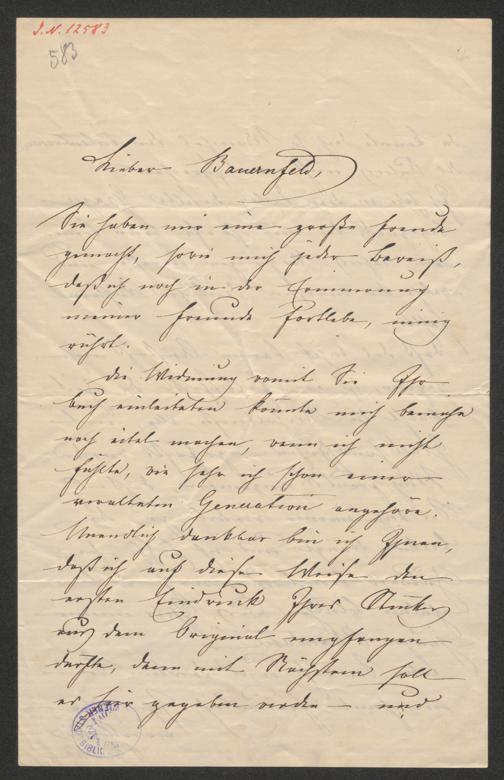 J. N. 12583
583
Lieber Bauernfeld,
Sie haben mir eine große Freude
gemacht, sowie mich jeder Beweiß,
daß ich noch in der Erinnerung
meiner Freunde fortlebe, innig
rührt.
Die Widmung womit Sie Ihr
Buch einleiteten könnte mich beinahe
noch eitel machen, wenn ich nicht
fühlte, wie sehr ich schon einer
veralteten Generation angehöre.
Unendlich dankbar bin ich Ihnen,
daß ich auf diese Weise den
ersten Eindruck Ihres Stückes
aus dem Original empfangen
durfte, denn mit Nächstem soll
es hier gegeben werden – und